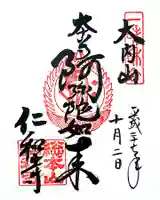 大内山
本尊
阿弥陀如来
仁和寺
平成二十七年
十月二日
総本山